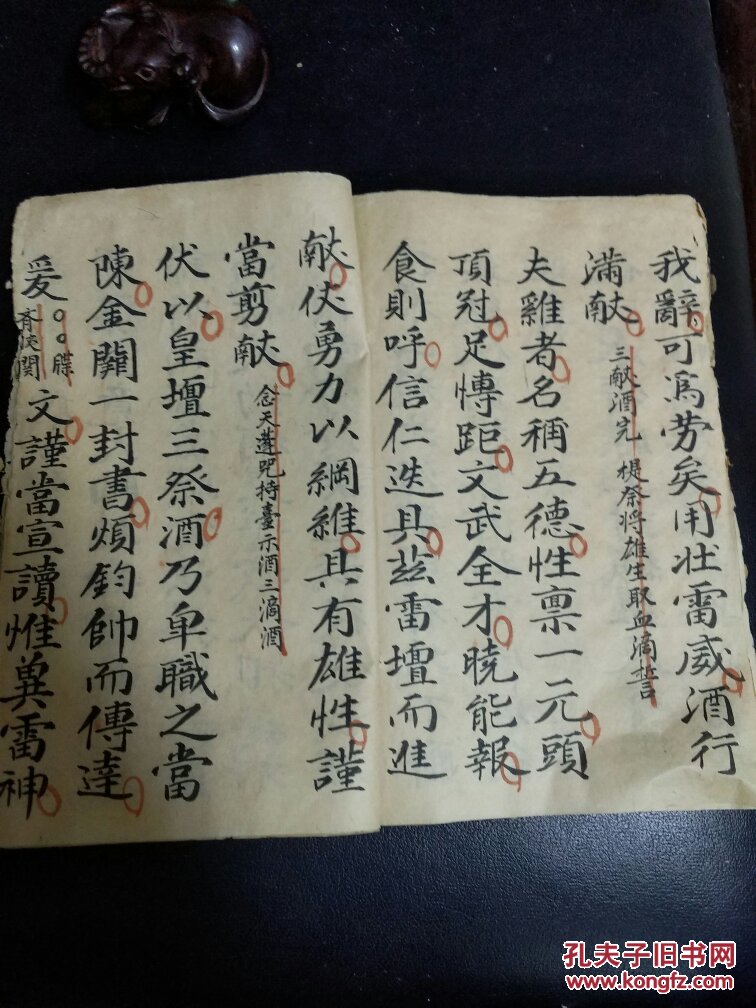 我辭可為劳矣用壮雷威酒行
满献 三献酒完 提祭将雄生取血滴誓言
夫雞者名稱五德性禀一元頭
頂冠足愽距文武全才曉能報
食則呼信仁迭具兹雷壇而進
献伏勇力以綱維具有雄性謹
當剪献 念天蓬咒持臺示酒三滴酒
伏以皇壇三祭酒乃卑職之當
陳金闕一封書煩鈞帥而傳達
爰○○牒 文謹當宣讀惟冀雷神
孔夫子旧书网
www.kongfz.com